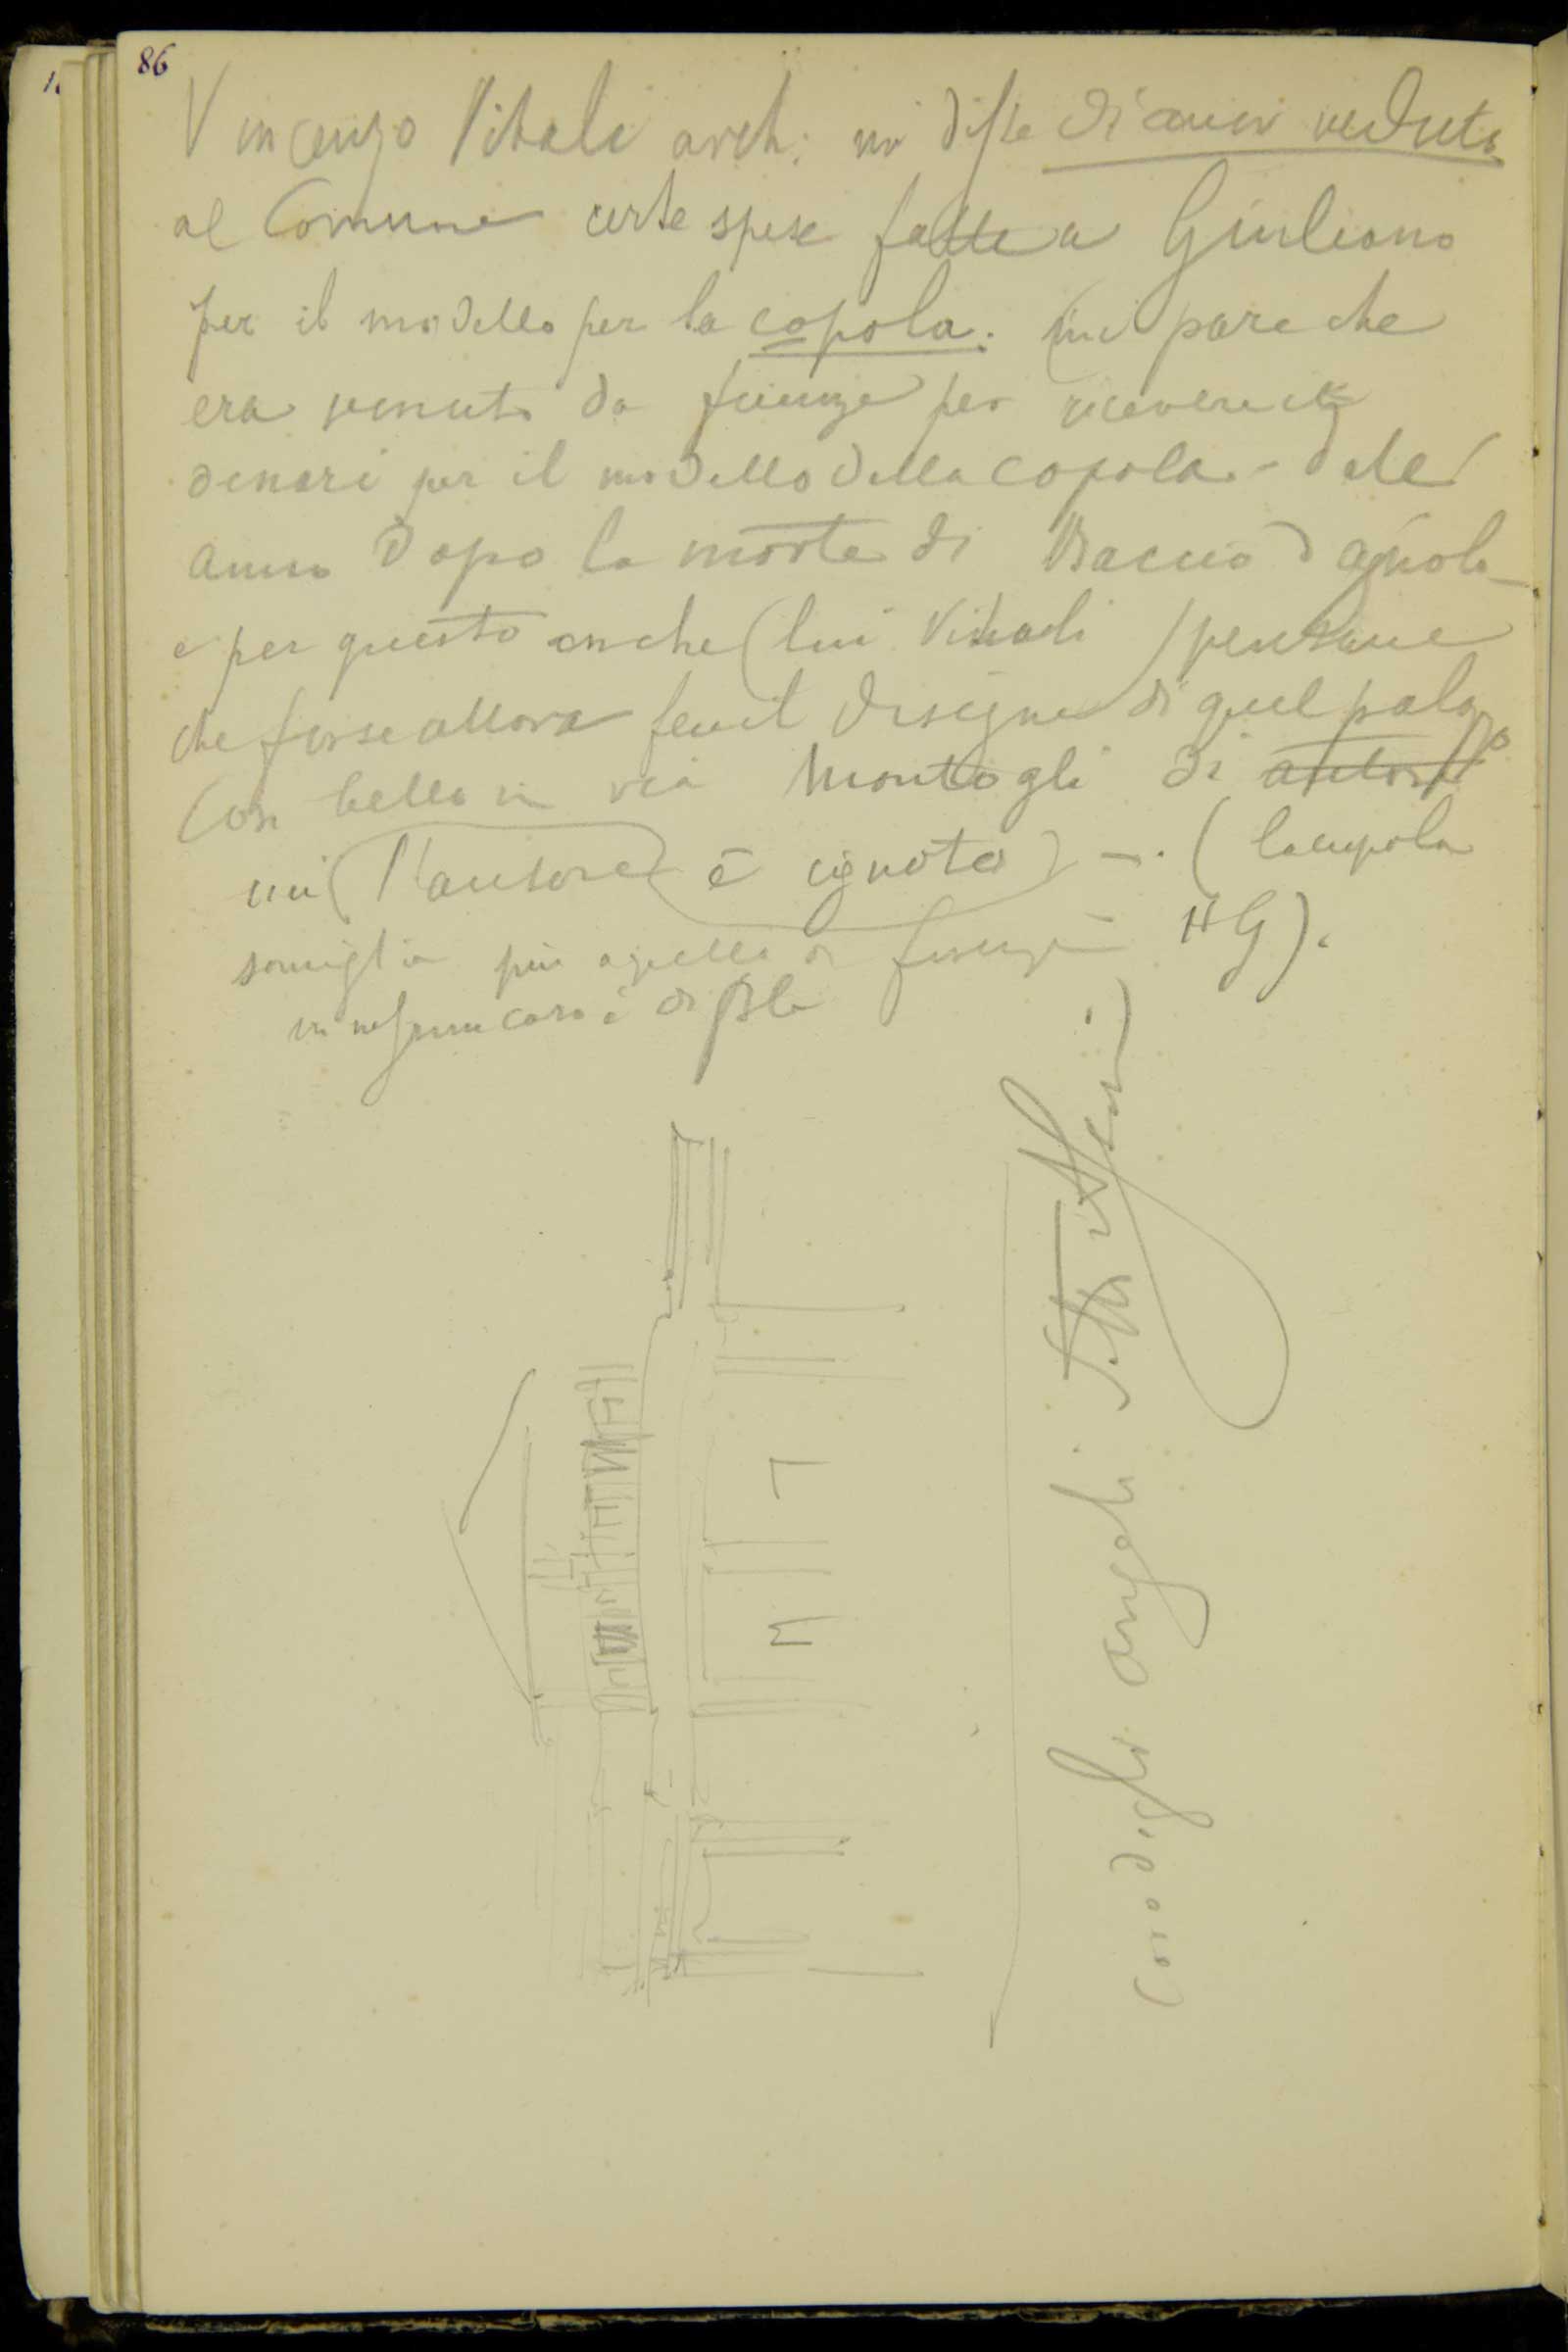 86
Vincenzo Vitali arch: mi disse di aver veduto
al Comune certe spese fatte a Giuliano
per il modello per la copola. (mi pare che
era venuto da firenze per ricevere
denari per il modello della copola -
anno dopo la morte di Baccio d'agnolo
e per questo anche (lui Vitali) pensava
che forse allora fece il disegno di quel palazzo
così bello in via Montogli di autore
cui (l'autore è ignoto) - . (la cupola
somiglia più a quella di firenze HG).
in nessun caso è di
degli angeli